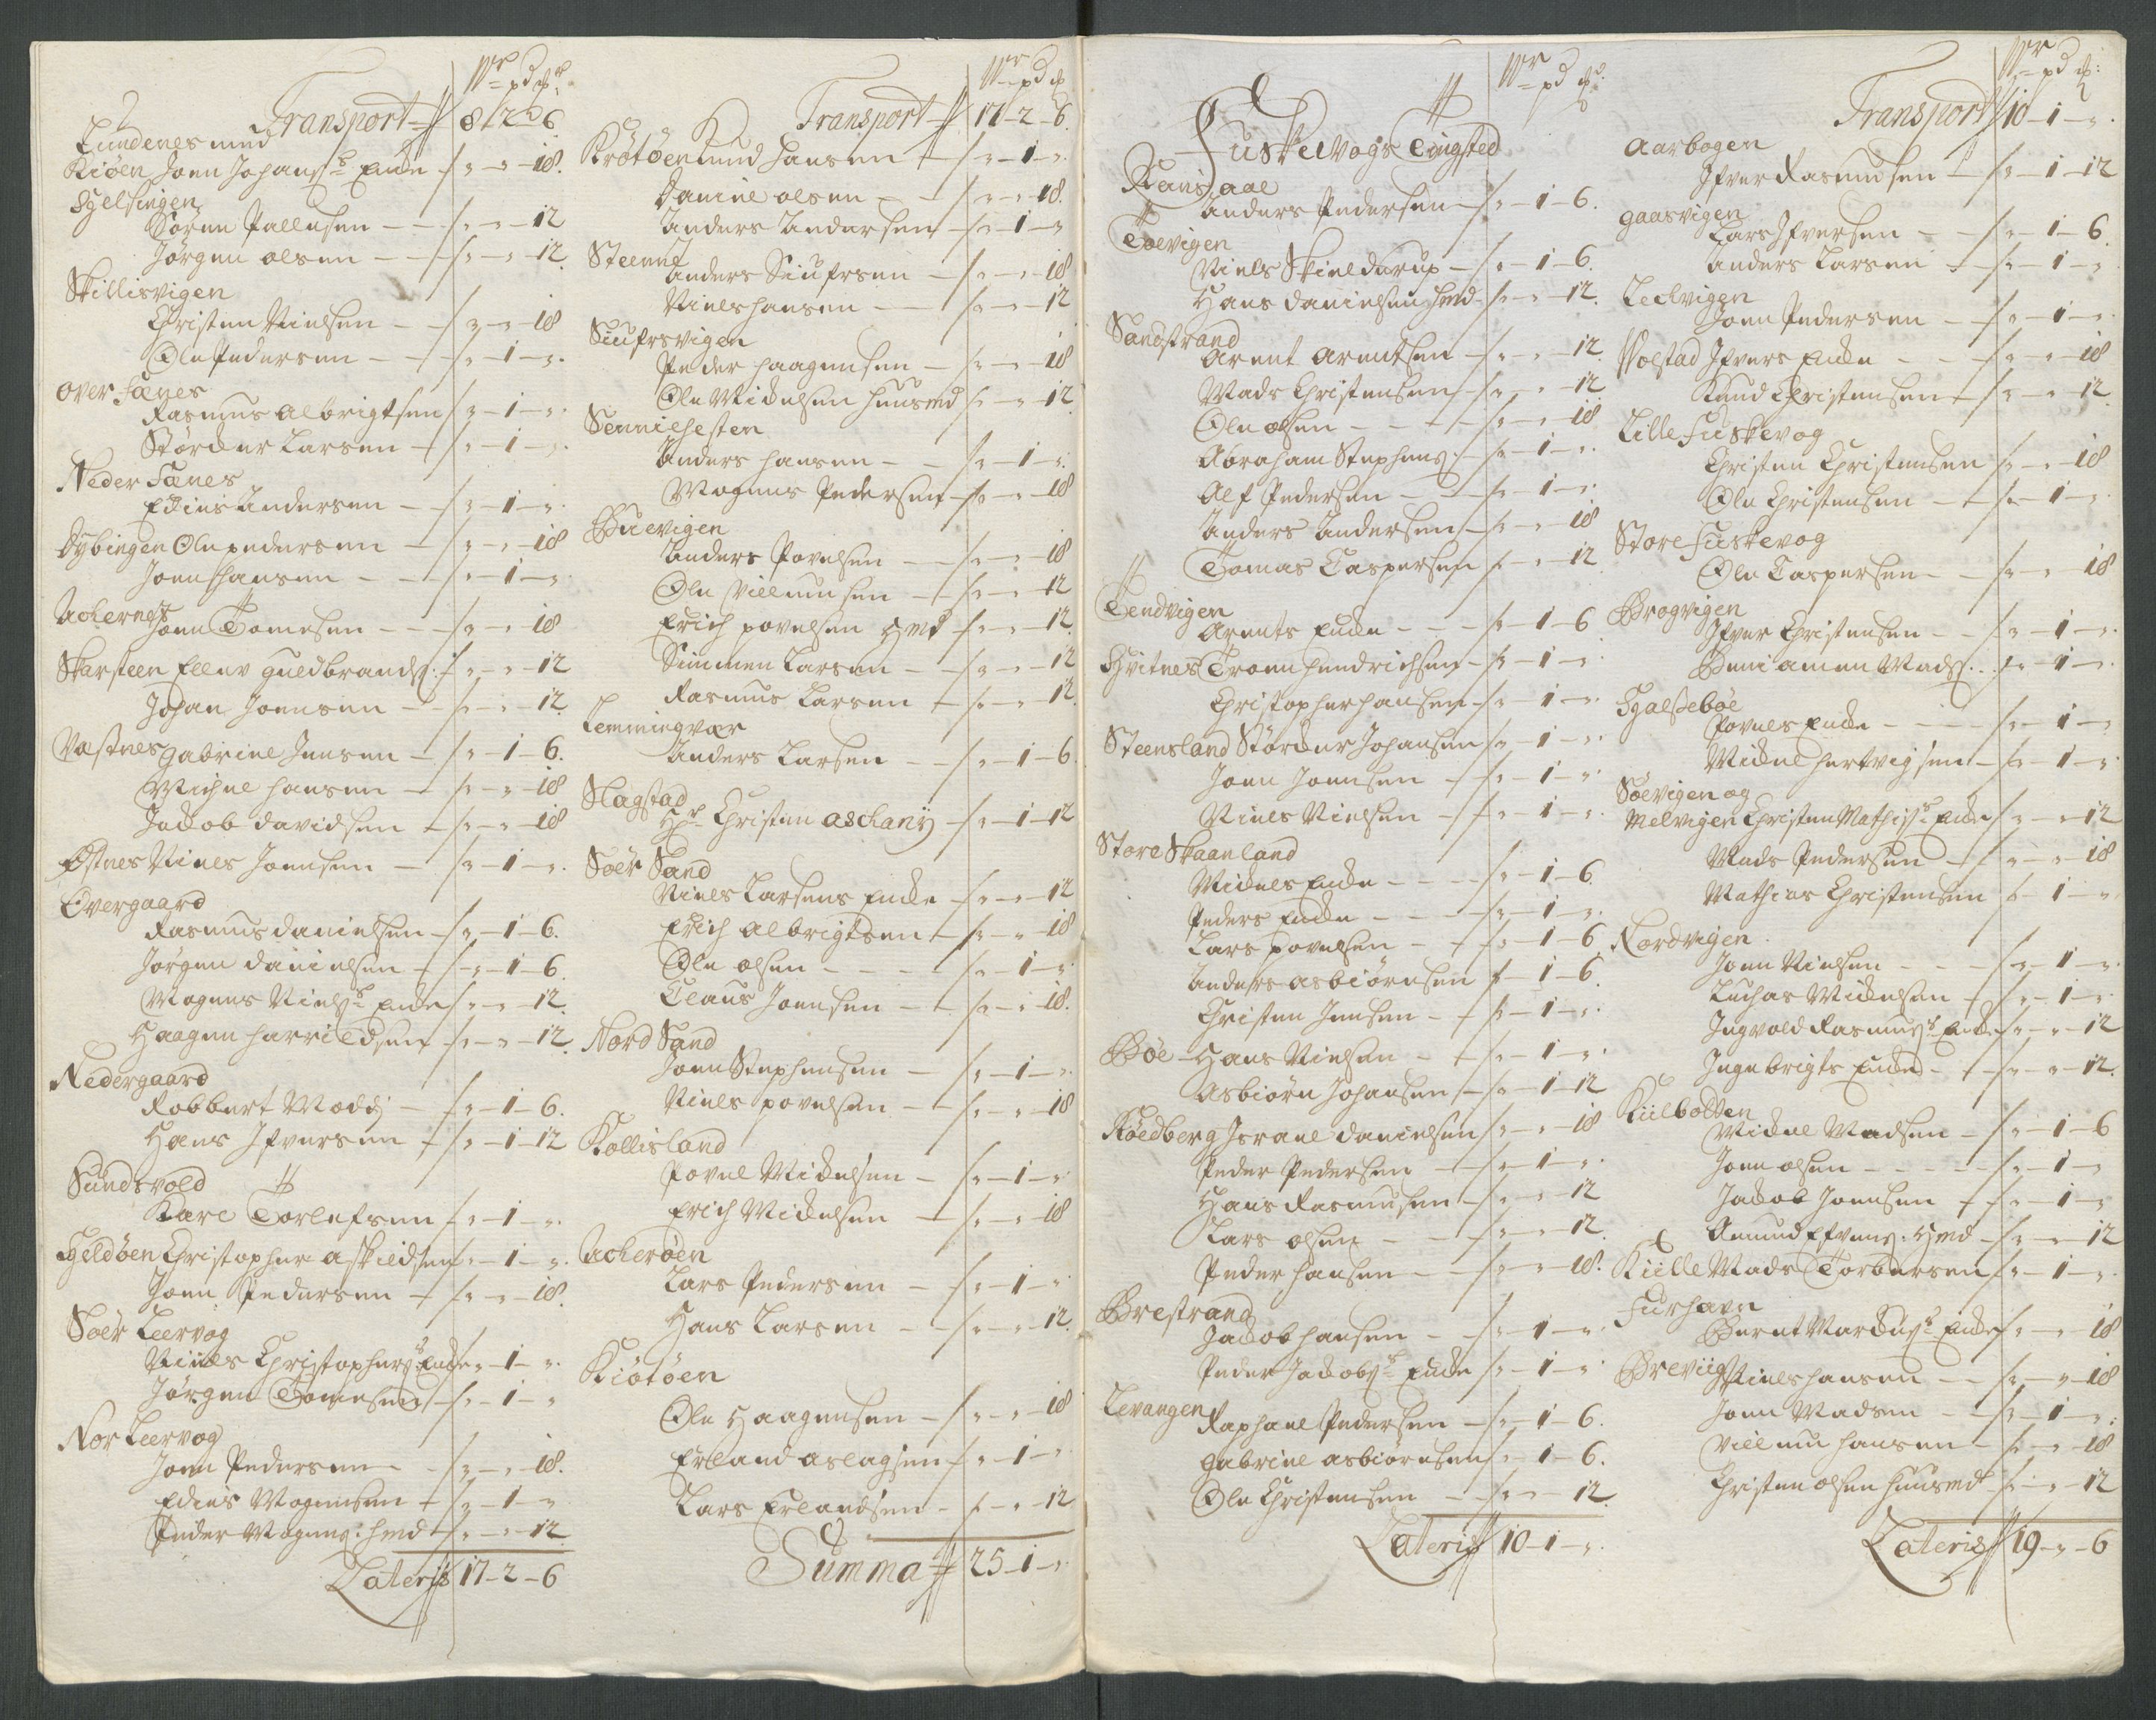 Wr pd ℔r
Transport 8 2 6
Lundenes med
Kiøen Joen Johans: Encke " " 18.
Sgelsingen
Søren Pallesen " " 12
Jørgen olsen " " 12.
Skillisvigen
Christen Nielsen " " 18
Ole Pedersen " 1 "
over Fænes
Rasmus Albrigtsen " 1 "
Størcker Larsen " 1 "
Neder Fænes
Edis Andersen " 1 "
Dybingen Ole pedersen " " 18
Joen hansen " 1 "
Ackernes
Joen Tomesen " " 18
Skarsteen Ellev guldbrands: " " 12
Johan Joensen " " 12.
Vastnes gabriel Jensen " 1 6.
Michel hansen " " 18
Jacob davidsen " " 18
Østnes Niels Joensen " 1 "
Overgaard
Rasmus danielsen " 1 6.
Jørgen danielsen " 1 6.
Mogens Niels: Encke " " 12.
Haagen harrildsen " " 12.
Nedergaard
Robbert Mordj " 1 6.
Hans Ifversen " 1 12
Sundsvold
Kare Torlefsen " 1 "
Heldøen Christopher askieldsen " 1 "
Joen Pedersen " " 18.
Soer Leervog
Niels Christophers: Encke " 1 "
Jørgen Tomesen " 1 "
Nor Leervog
Joen Pedersen " " 18.
Edis Mogensen " 1 "
Peder Mogens: hmd " " 12.
Lateris 17 2 6
Wr pd ℔
Transport 17 2 6.
Krøtøen Knud hansen " 1 "
Daniel olsen " " 18.
Anders Andersen " 1 "
Steenne
Anders Siufrsen " " 18
Niels hansen " " 12
Siufrsvigen
Peder haagensen " " 18
Ole Mickelsen huusmd " " 12
Sennichesten
Anders hansen " 1 "
Mogens Pedersen " " 18
Buevigen
Anders Povelsen " " 18
Ole Villumsen " " 12
Erich povelsen hmd " " 12.
Simmen Larsen " " 12
Rasmus Larsen " " 12.
Lemmingvær
Anders Larsen " 1 6
Slagstad
Hr Christen aschanij " 1 12
Soer Sand
Niels Larsens Encke " " 12
Erich albrigtsen " " 18
Ole olsen " 1 "
Claus Joensen " " 18.
Nord Sand
Joen Stephensen " 1 "
Niels povelsen " " 18
Kollisland
Povel Mickelsen " 1 "
Erich Mickelsen " " 18
Ackerøen
Lars Pedersen " 1 "
Hans Larsen " " 12.
Kiøtøen
Ole Haagensen " " 18
Erland aslagsen " 1 "
Lars Erlandsen " " 12
Summa 25 1 "
Wr pd ℔
Fuskevogs Tingsted
Rensaae
Anders Pedersen " 1 6.
Toevigen
Niels Skieldrup " 1 6.
Hans danielsen hmd " " 12.
Sandstrand
Arent arentsen " " 12.
Mads Christensen " " 12.
Ole olsen " " 18
Abraham Stephens: " 1 "
Alf Pedersen " 1 "
Anders Andersen " " 18
Tomas Caspersen " " 12
Tendvigen
Arents Encke " 1 6
Hvitnes Troen hendrichsen " 1 "
Christopher hansen " 1 "
Steensland Størcker Johansen " 1 "
Joen Joensen " 1 "
Niels Nielsen " 1 "
Store Skaanland
Mickels Encke " 1 6.
Peders Encke " 1 "
Lars povelsen " 1 6.
Anders asbiørnsen 1 6.
Christen Jensen " 1 "
Bøe Hans Nielsen " 1 "
Asbiørn Johansen " 1 12
Røedberg Israel danielsen " " 18
Peder Pedersen " 1 "
Hans Rasmusen " " 12
Lars olsen " " 12.
Peder hansen " " 18.
Brestrand
Jacob hansen " 1 "
Peder Jacobs: Encke " 1 "
Levangen Raphael Pedersen " 1 6.
gabriel asbiørnsen " 1 6.
Ole Christensen " " 12.
Lateris 10 1 "
Wr pd ℔
Transport 10 1 "
Aarbogen
Ifver Rasmusen " 1 12
gaasvigen
Lars Ifversen " 1 6.
Anders Larsen " 1 "
Leelvigen
Joen Pedersen " 1 "
Molstad Ifvers Encke " " 18
Knud Christensen " " 12.
Lille Fuskevog
Christen Christensen " " 18
Ole Christensen " 1 "
Store Fuskevog
Ole Caspersen " " 18
Brogvigen
Ifver Christensen " 1 "
Beniamen Mads: " 1 "
Hgalsebøe
Povels Encke " 1 "
Mickel hertvigsen " 1 "
Søevigen og
Melvigen Christen Mathis: Encke " " 12
Mads Pedersen " " 18
Mathias Christensen " 1 "
Nordvigen
Joen Nielsen " 1 "
Luchas Mickelsen " 1 "
Ingvold Rasmus: Encke " " 12
Ingebrigts Encke " " 12.
Kiilbotten
Mickel Madsen " 1 6
Joen olsen " 1 "
Jacob Joensen " 1 "
Amund Efvens: hmd " " 12
Kiille Mads Torbersen " 1 "
Furhavn
Bernt Marcus: Encke " " 18
Breviig Niels hansen " " 18
Joen Madsen " 1 "
Villum hansen " " 18
Christen olsen huusmd " " 12
Lateris 19 " 6